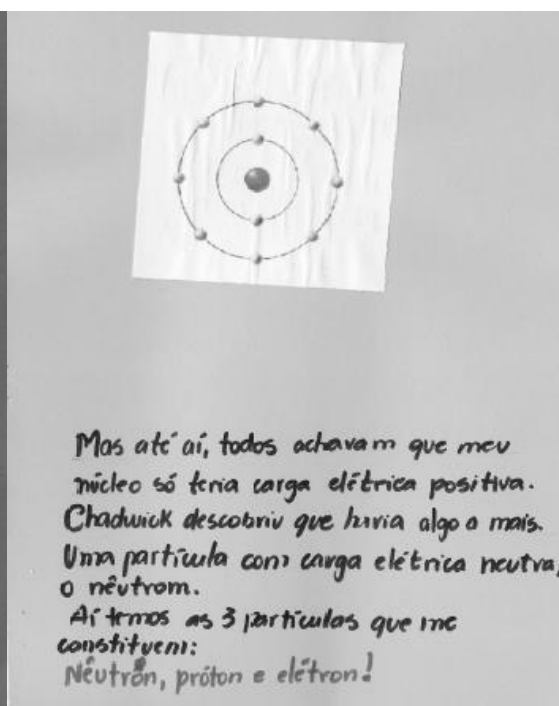 Mas até aí, todos achavam que meu
núcleo só teria carga elétrica positiva.
Chadwick descobriu que havia algo a mais.
Uma partícula com carga elétrica neutra,
o nêutrom.
Aí temos as 3 partículas que me
constituem:
Nêutron, próton e elétron!